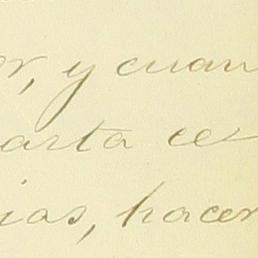 er, y cuan
arta ce
ias, hacer